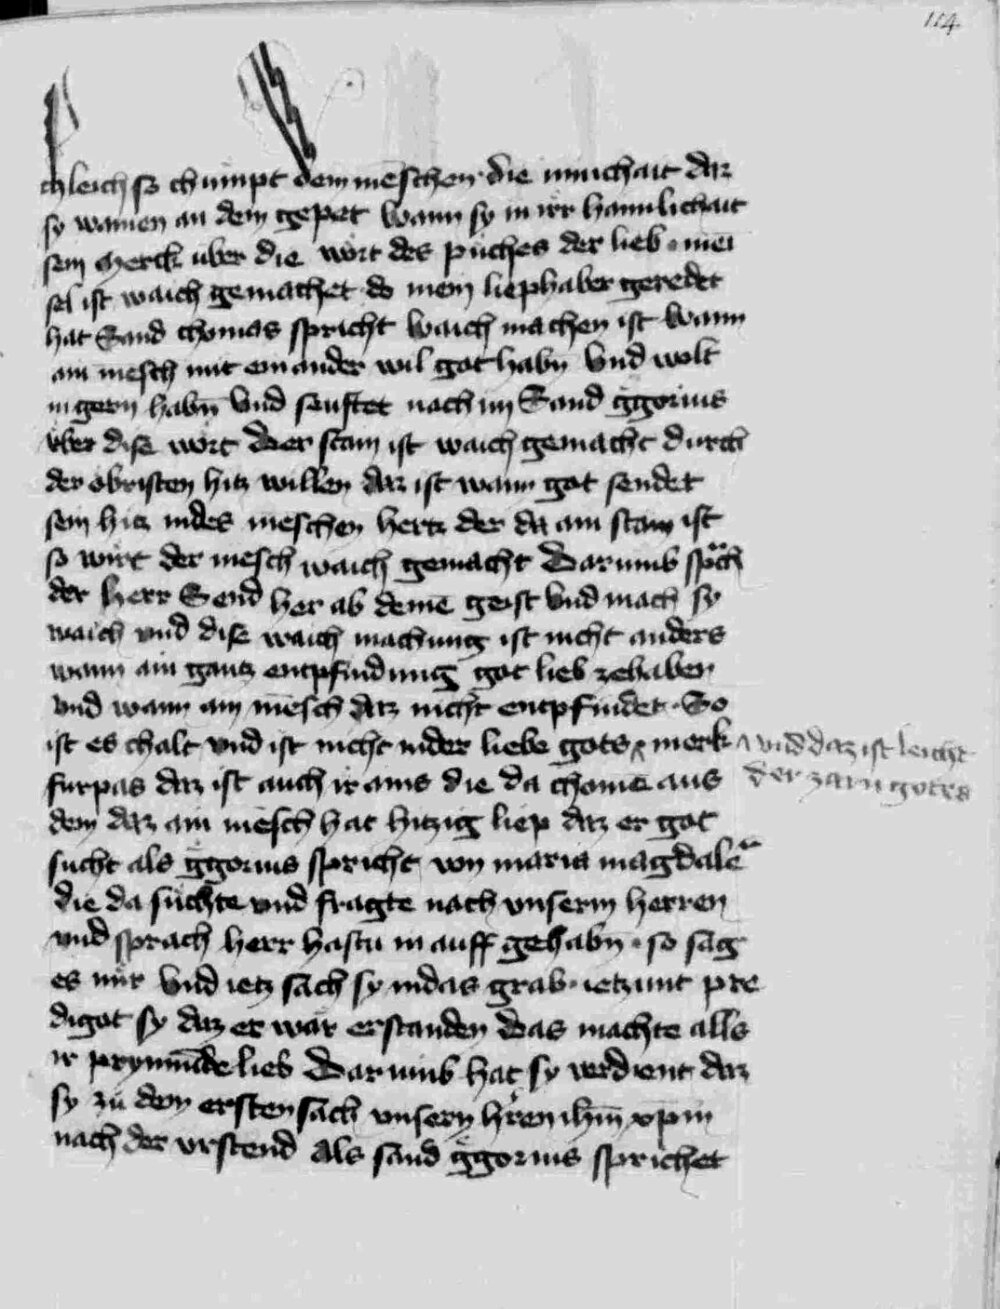 114
chleich so chümpt dem mēschen die innichait daz
sy wainen an dem gepet wann sy in irr haimlichait
sein Merck uber die wort des püches der lieb · mei
sel ist waich gemachet do mein liephaber geredet
hat Sand thomas spricht waich machen ist wann
ain mēsch nut ein ander wil got habn̄ Vnd wolt
in gern habn̄ Vnd seuftet nach im Sand ggorius
vber dise wort Der stain ist waich gemacht durch
der obristen hitz willen daz ist wann got sendet
sein hitz indes mēschen hertz der da ain stain ist
so wirt der mēsch waich gemacht Darumb sp̈ch
der herr Send her ab deinē geist Vnd mach sy
waich vnd dise waich machung ist nicht anders
wann ain gantz entpfindung got lieb zehaben
vnd wann ain mēsch daz nicht entpfindet · So
ist es chalt vnd ist nicht inder liebe gots ^ merk
^ vnd daz ist leicht
der zarn gottes
furpas daz ist auch ir ains die da chomē aus
dem daz ain mēsch hat hitzig liep daz er got
sucht als ggorius spricht von maria magdale
die da süchte vnd fragte nach vnserm herren
vnd sprach herr hastu in auff gehabn̄ · so sag
es mir Vnd ietz sach sy indas grab · ietzunt pre
digot sy daz er wär erstanden Das machte alls
ir prynnūde lieb Darumb hat sy verdient daz
sy zü dem ersten sach vnsern hr̄en ih̄m xp̄m
nach der vrstend Als sand ggorius sprichet